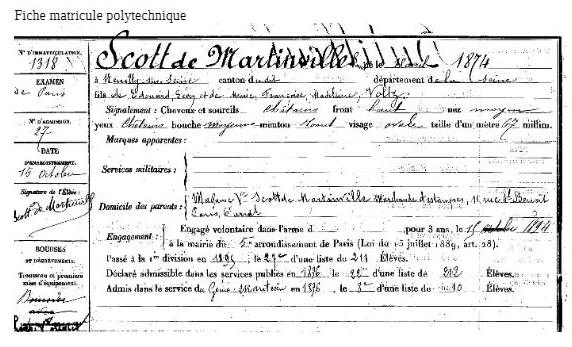 Fiche matricule polytechnique
N° D'IMMATRICULATION.
1318
EXAMEN
de Paris
N° D'ADMISSION.
27
DATE
D'ENREGISTREMENT.
15 octobre
Signature de l'Élève:
Scott de Martinville
BOURSES
ET DÉPARTEMENTS.
Trousseau et première
mise d'équipement.
Boursier
Scott de Martinville né le 1874
à Neuilly-sur-Seine canton dudit département de la Seine
fils de Edouard, Léon et de Marie, Françoise, Madeleine, Voltz
Signalement : Cheveux et sourcils châtains front haut nez moyen
yeux châtains bouche moyenne menton rond visage ovale taille d'un mètre 67 millim.
Marques apparentes :
Services militaires :
Domicile des parents : Madame Vve Scott de Martinville Marchande d'estampes, 11 rue St Benoit
Paris
Engagement : Engagé volontaire dans l'arme d pour 3 ans, le 15 octobre 1894
à la mairie du 5e arrondissement de Paris (Loi du 15 juillet 1889, art. 28).
Passé à la 1re division en 1895 le 29e d'une liste de 211 Élèves.
Déclaré admissible dans les services publics en 1896, le 22e d'une liste de 212 Élèves.
Admis dans le service du Génie Maritime en 1896, le 8e d'une liste de 10 Élèves.